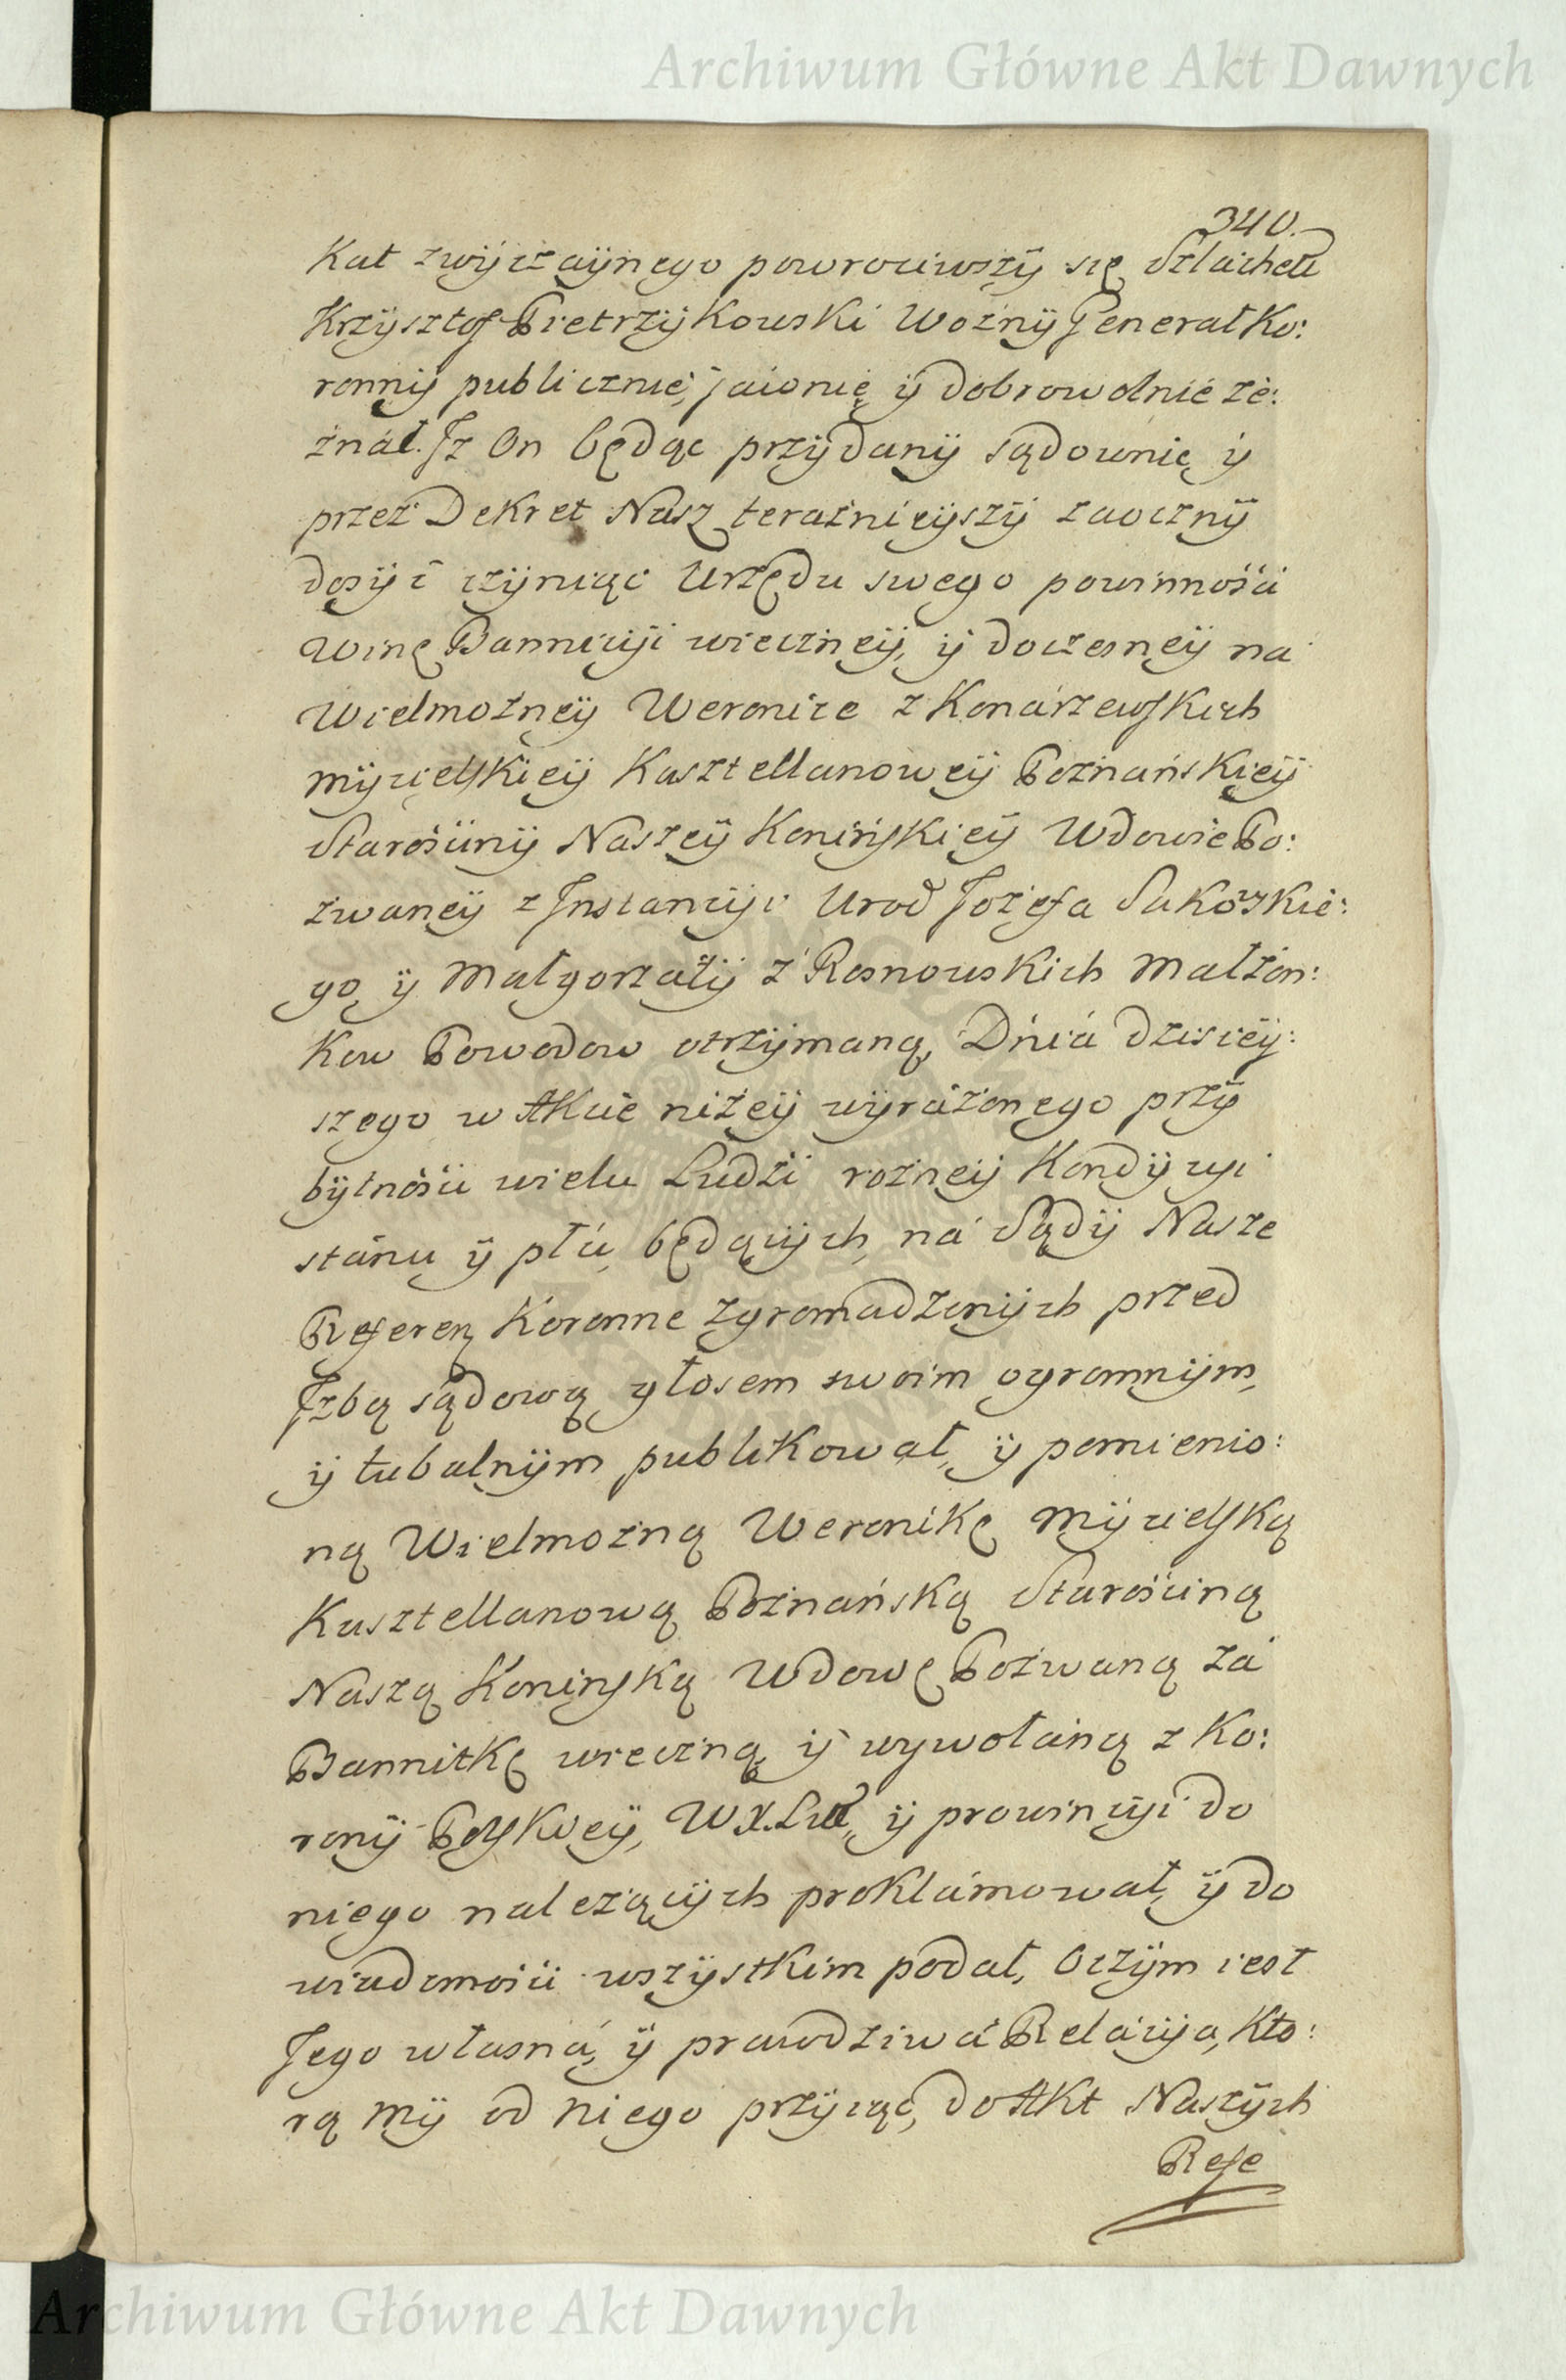 Archiwum Główne Akt Dawnych
340.
Kat zwÿczaÿnego powrociwszÿ się Szlachetn
Krzÿsztof PietrzÿKowski WoznÿGenerał Ko:
ronnÿ publicznie, jawnie ÿ dobrowolnie ze:
znał. Jż On będąc przÿdanÿ sądownie ÿ
przez DeKret Nasz teraznieÿszÿ zaocznÿ
dosÿć czÿniąc Urzędu swego powinności
Winę Bannicÿi wieczneÿ, ÿ doczesneÿ na
Wielmozneÿ Weronice z Konarzewskich
MÿcielsKieÿ Kasztellanoweÿ PoznańsKieÿ
Starościnÿ Naszeÿ KonińsKieÿ Wdowie Po:
zwaneÿ z Jnstancÿi Urod Jozefa SaKowsKie:
go ÿ Małgorzatÿ z RosnowsKich Małżon:
Kow Powodow otrzÿmaną, Dnia dzisieÿ:
szego w AKcie niżeÿ wÿrażonego przÿ
bÿtności wielu Ludzi rożneÿ Kondÿcÿi
stanu ÿ płci, będącÿch, na Sądÿ Nasze
Referen Koronne zgromadzonÿch przed
Jzbą sądową głosem swoim ogromnÿm,
ÿ tubalnÿm publiKował, ÿ pomienio:
ną Wielmożną WeroniKę MÿcielsKą
Kasztellanową PoznańsKą Starościną
Naszą KoninsKą Wdowę Pozwaną za
BannitKę wieczną, ÿ wywołaną z Ko:
ronÿ PolsKieÿ, W.X.Lit, ÿ prowincÿi do
niego należącÿch proKlamował, ÿ do
wiadomości wszÿstKim podał, Oczÿm iest
Jego własna, ÿ prawdziwa Relacÿja, Kto:
rą Mÿ od niego przÿiąć, do AKt Naszÿch
Refe
Archiwum Główne Akt Dawnych